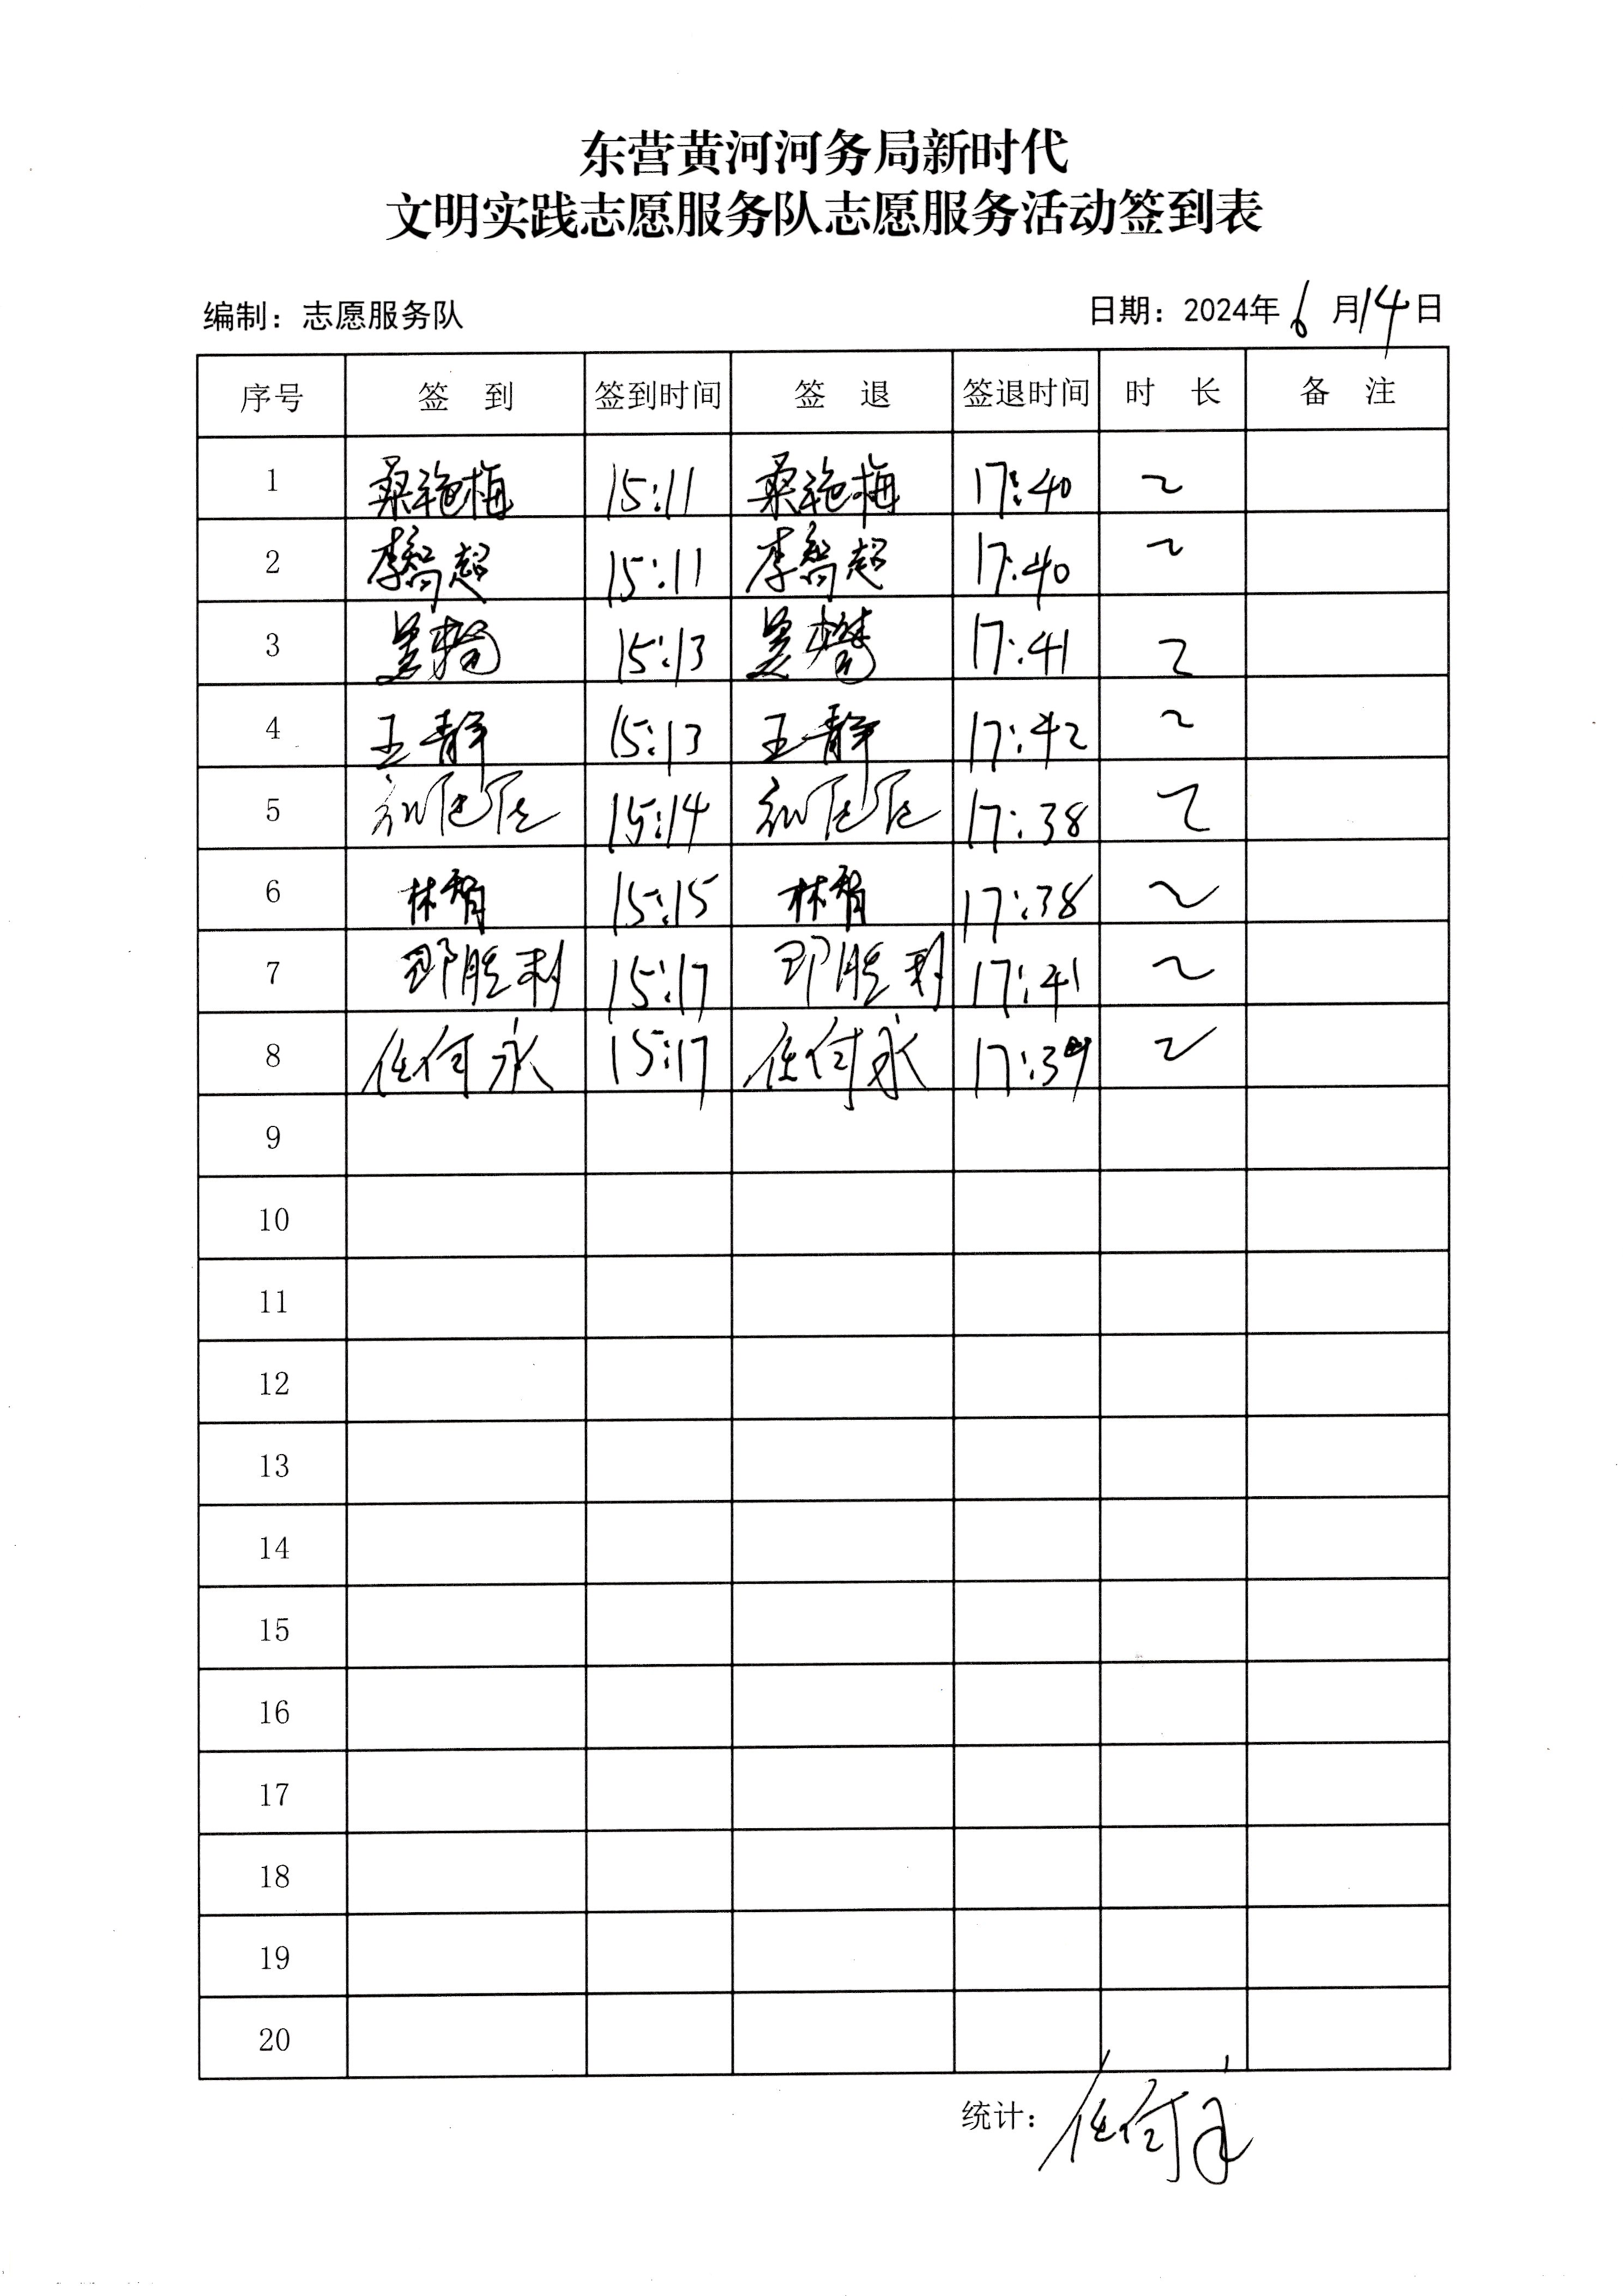 东营黄河河务局新时代
文明实践志愿服务队志愿服务活动签到表
编制：志愿服务队 日期：2024年6月14日
序号 签 到 签到时间 签 退 签退时间 时 长 备 注
1 桑艳梅 15:11 桑艳梅 17:40 2
2 李智超 15:11 李智超 17:40 2
3 吴 15:13 吴 17:41 2
4 王静 15:13 王静 17:42 2
5 15:14 17:38 2
6 林智 15:15 林智 17:38 2
7 胜利 15:17 胜利 17:41 2
8 任何永 15:17 任何永 17:39 2
9
10
11
12
13
14
15
16
17
18
19
20
统计：任何永